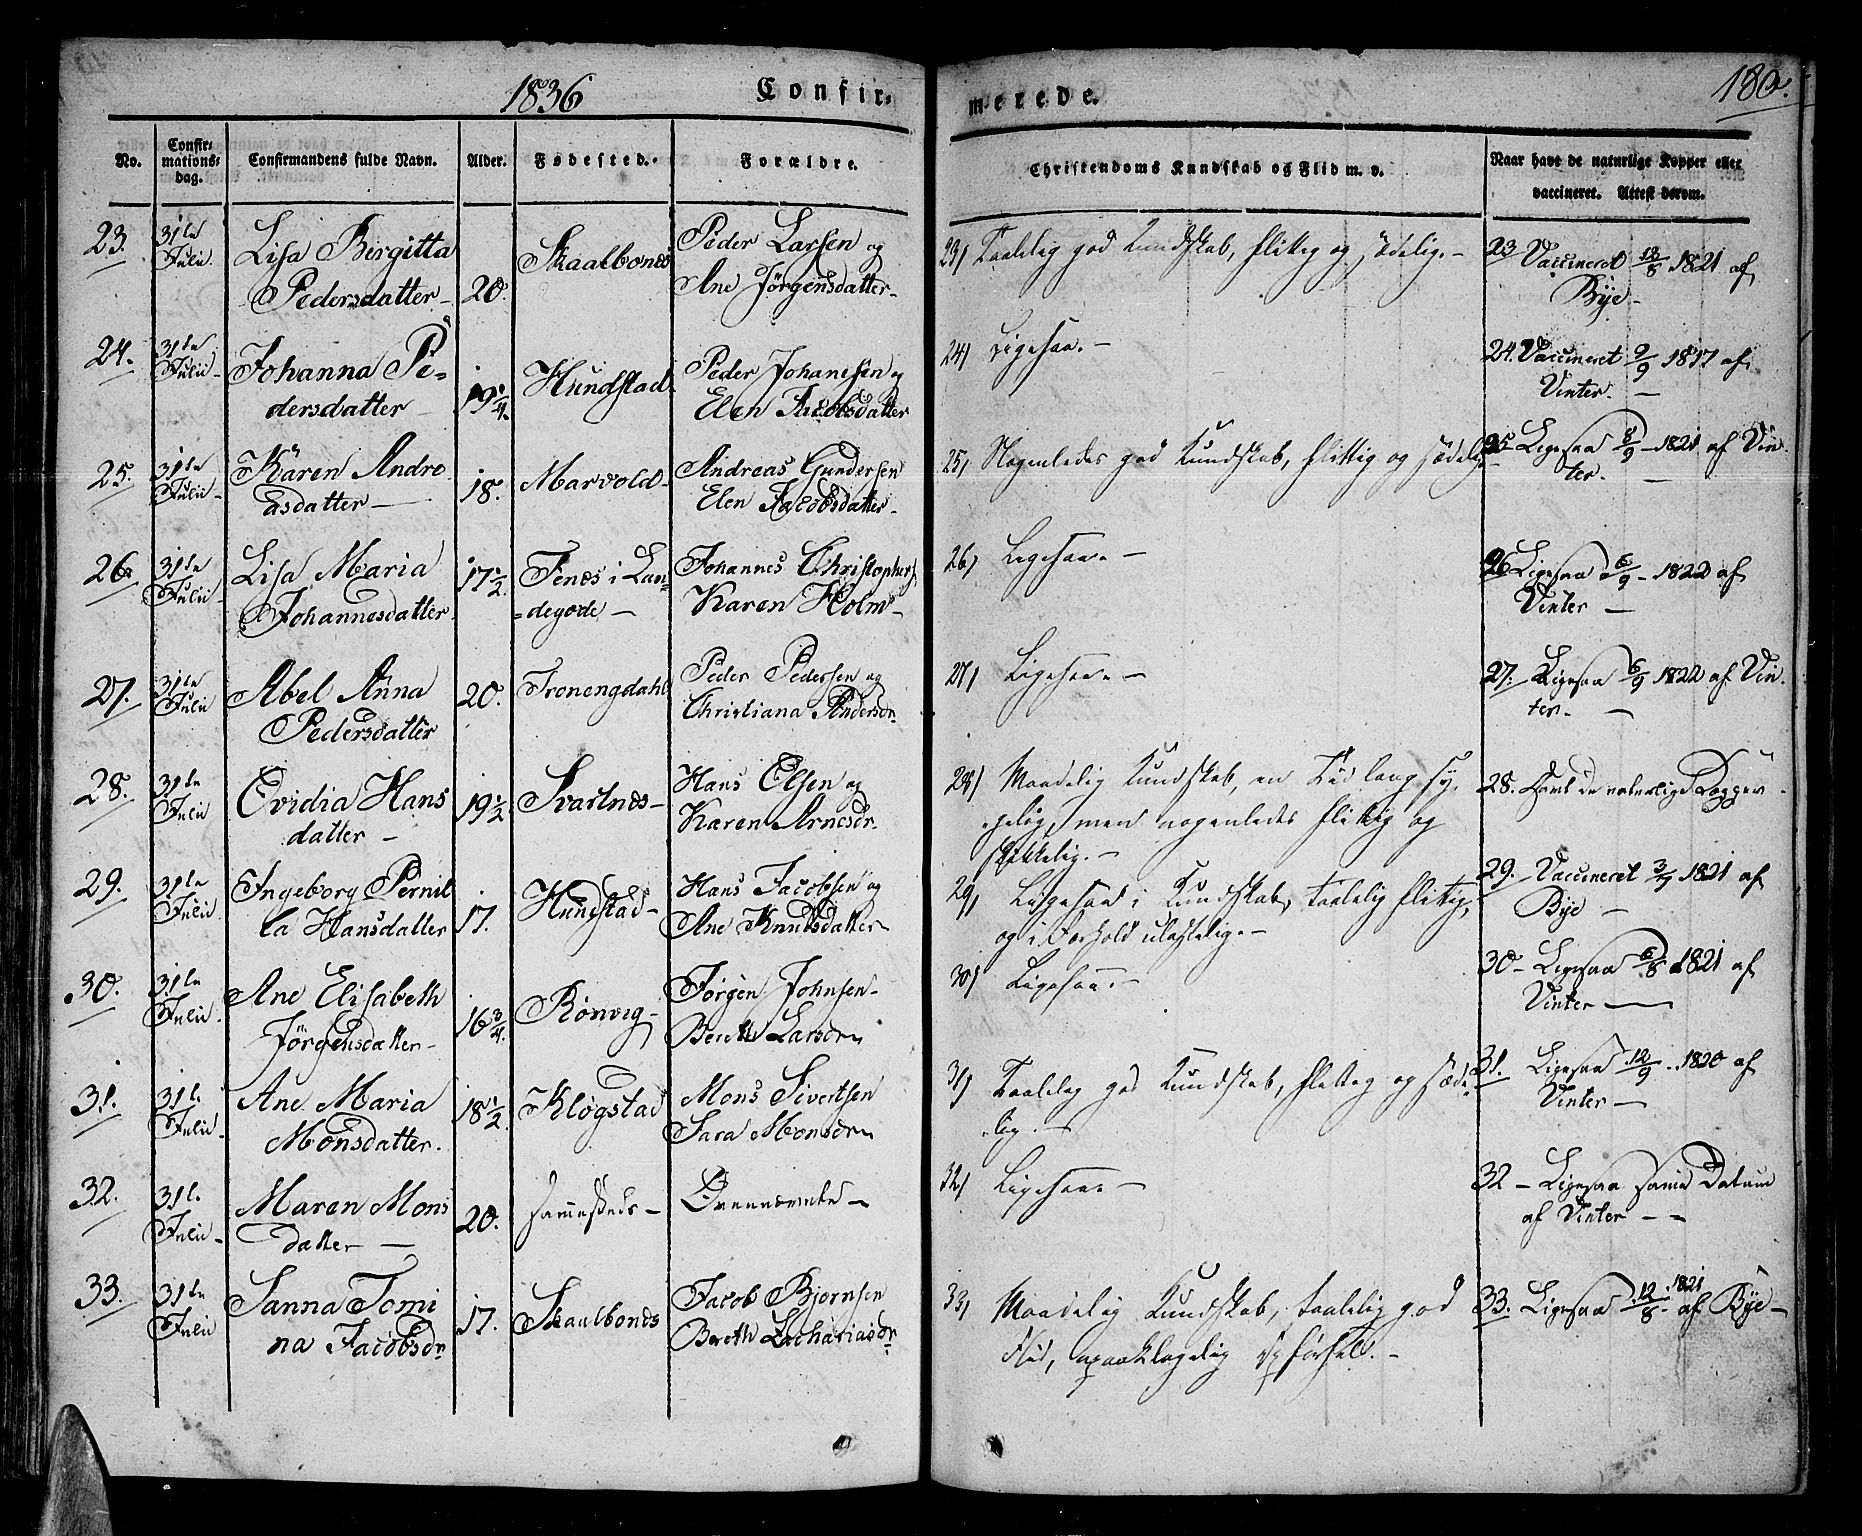 1836 Confir-
merede. 180.
No.
Confir-
mations-
dag.
Confirmandens fulde Navn.
Alder.
Fødested.
Forældre.
Christendoms Kundskab og Flid m. v.
Naar havt de naturlige Kopper eller
vaccineret. Attest derom.
23. 31te Julii Lisa Birgitta
Pedersdatter 20. Skaalbones
Peder Larsen og
Ane Jörgensdatter
24. 31te Julii Johanna Pe-
dersdatter 19 1/4. Hundstad
Peder Johanesen og
Elen Jacobsdatter
25. 31te Julii Karen Andre
asdatter 18. Marvold
Andreas Gundersen
Elen Jacobsdatter
26. 31te Julii Lisa Maria
Johannesdatter 17 1/2. Fenes i Lan-
=degode
Johannes Christophers
Karen Holm
27. 31te Julii Abel Anna
Pedersdatter 20. Tronengsdahl
Peder Pedersen og
Christiana Andersdr
28. 31te Julii Evidia Hans
datter 19 1/2 Svartnes
Hans Olsen og
Karen Arnesdr
29. 31te Julii Ingeborg Pernil
la Hansdatter 17. Hundstad
Hans Jacobsen og
Ane Knudsdatter
30. 31te Julii Ane Elisabeth
Jörgensdatter 16 3/4. Rönvig
Jörgen Johnsen
Bereth Larsdr
31. 31te Julii Ane Maria
Monsdatter. 18 1/2 Klögstad
Mons Sivertsen
Sara Monsdr
32. 31te Julii Maren Mons
datter 20. sammesteds
Ovennævnte
33. 31te Julii Sanna Tomi
na Jacobsdr 17. Skaalbones
Jacob Bjornsen
Bereth Zachariasdr
23) Taalelig god Kundskab, flittig og sædelig.
24) Ligesaa.
25) Nogenledes god Kundskab, flittig og sædelig
26) Ligesaa.
27) Ligesaa.
28) Maadelig Kundskab, en Tid lang sy-
gelig, men nogenledes flittig og
skikkelig.
29) Ligesaa i Kundskab, taalelig flittig,
og i Forhold ulastelig.
30) Ligesaa.
31) Taalelig god Kundskab, flittig og sæde-
lig.
32) Ligesaa.
33) Maadelig Kundskab, taalelig god
Flid, upaaklagelig Opførsel.
23 Vaccineret 12/8 1821 af
Bye
24. Vaccineret 9/9 1817 af
Vinter.
25 Ligesaa 8/9 1821 af Vin
ter.
26 Ligesaa 6/9 1822 af
Vinter
27. Ligesaa 6/9 1822 af Vin
ter.
28. Havt de naturlige Kopper
29. Vaccineret 3/7 1821 af
Bye
30 Ligesaa 6/8 1821 af
Vinter
31. Ligesaa 12/9. 1820 af
Vinter
32 Ligesaa samme Datum
af Vinter
33. Ligesaa 12/8 1821 af Bye